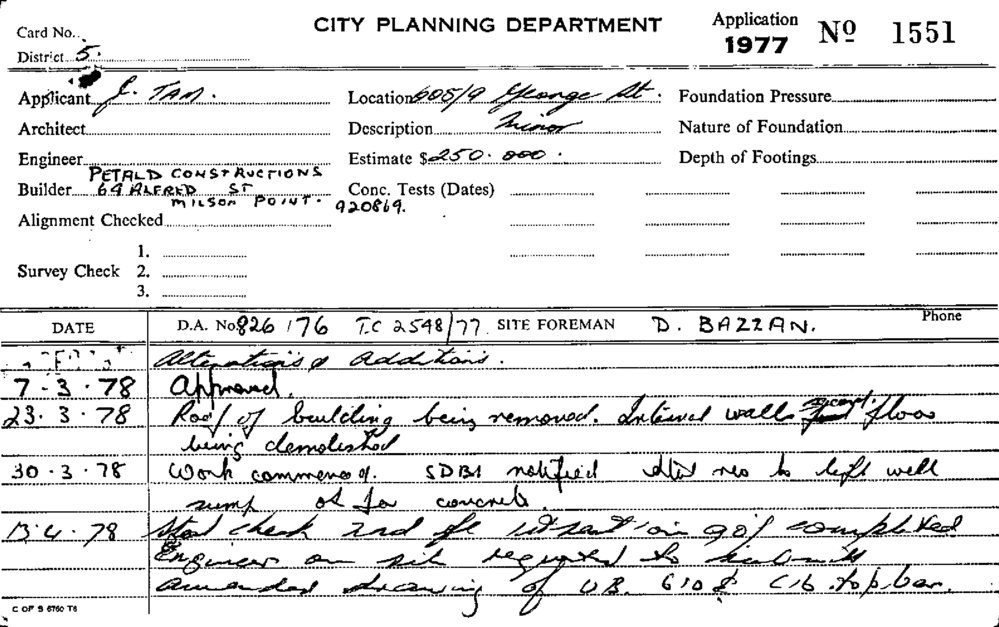 CITY PLANNING DEPARTMENT
Application
1977 Nº 1551
Card No.
District 5.
Applicant J. TAM.
Location 605/9 George St.
Foundation Pressure
Architect
Description Minor
Nature of Foundation
Engineer
Estimate $250.000.
Depth of Footings
PETALD CONSTRUCTIONS
Builder 64 ALFRED ST
MILSON POINT. 920869.
Conc. Tests (Dates)
Alignment Checked
1.
Survey Check 2.
3.
DATE D.A. No 826/76 T.C 2548/77 SITE FOREMAN D. BAZZAN. Phone
Alterations & Additions.
7.3.78 Approved.
23.3.78 Roof of building being removed. Internal walls floor
being demolished
30.3.78 Work commenced. SDBS notified reo to lift well
sump ok for concrete.
13.4.78 Steel check 2nd completed
Engineer on site requested to submit
amended drawing of UB. 610 & C16 top bar.
C OF S 6760 T6